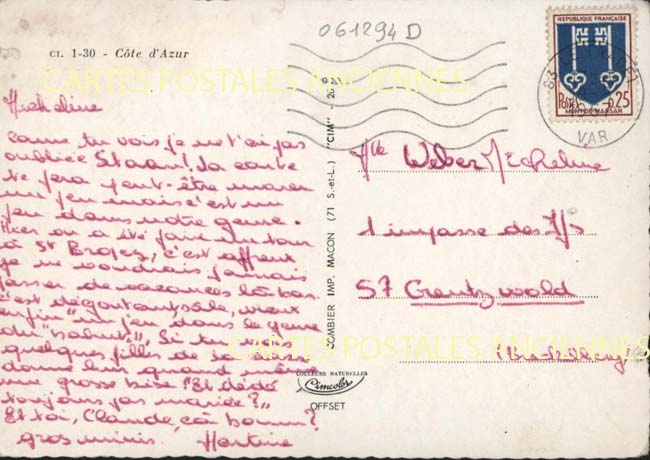 CI. 1-30 - Côte d'Azur
061294 D
CARTES POSTALES ANCIENNES
Micheline
comme tu vois je ne t'ai pas
oubliée. La carte
te fera peut-être marrer
un peu mais c'est un
peu dans notre genre.
Hier on a été faire un tour
à St Tropez, c'est affreux
je ne voudrais jamais
passer de vacances là-bas.
c'est dégoutant, sale, vieux
enfin un peu dans le genre
du "salut". Si tu
quelques filles de
donne leur quand même
une grosse bise. "Et dédé
toujours pas mariée?"
Et toi, Claude, ça boume?
gros mimis. Martine
COMBIER IMP. MACON (71 S.-et-L.) "CIM"
COULEURS NATURELLES
Cimcolor
OFFSET
REPUBLIQUE FRANÇAISE
POSTES 0,25
MONT-DE-MARSAN
83
VAR
Mlle Weber Micheline
1 impasse des Ifs
57 Creutzwald
(Moselle)
CARTES POSTALES ANCIENNES